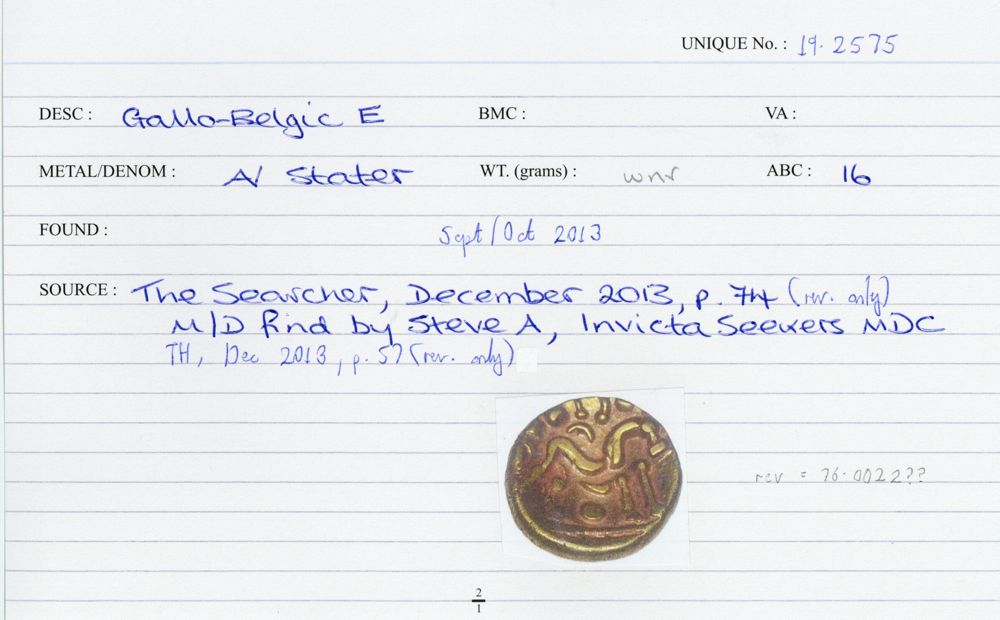 UNIQUE No. : 19.2575
DESC : Gallo-Belgic E BMC : VA :
METAL/DENOM : A/ Stater WT. (grams) : wnr ABC : 16
FOUND : Sept/Oct 2013
SOURCE : The Searcher, December 2013, p. 74 (rev. only)
M/D find by Steve A, Invicta Seekers MDC
TH, Dec 2013, p. 57 (rev. only)
rev = 76.0022??
2
1